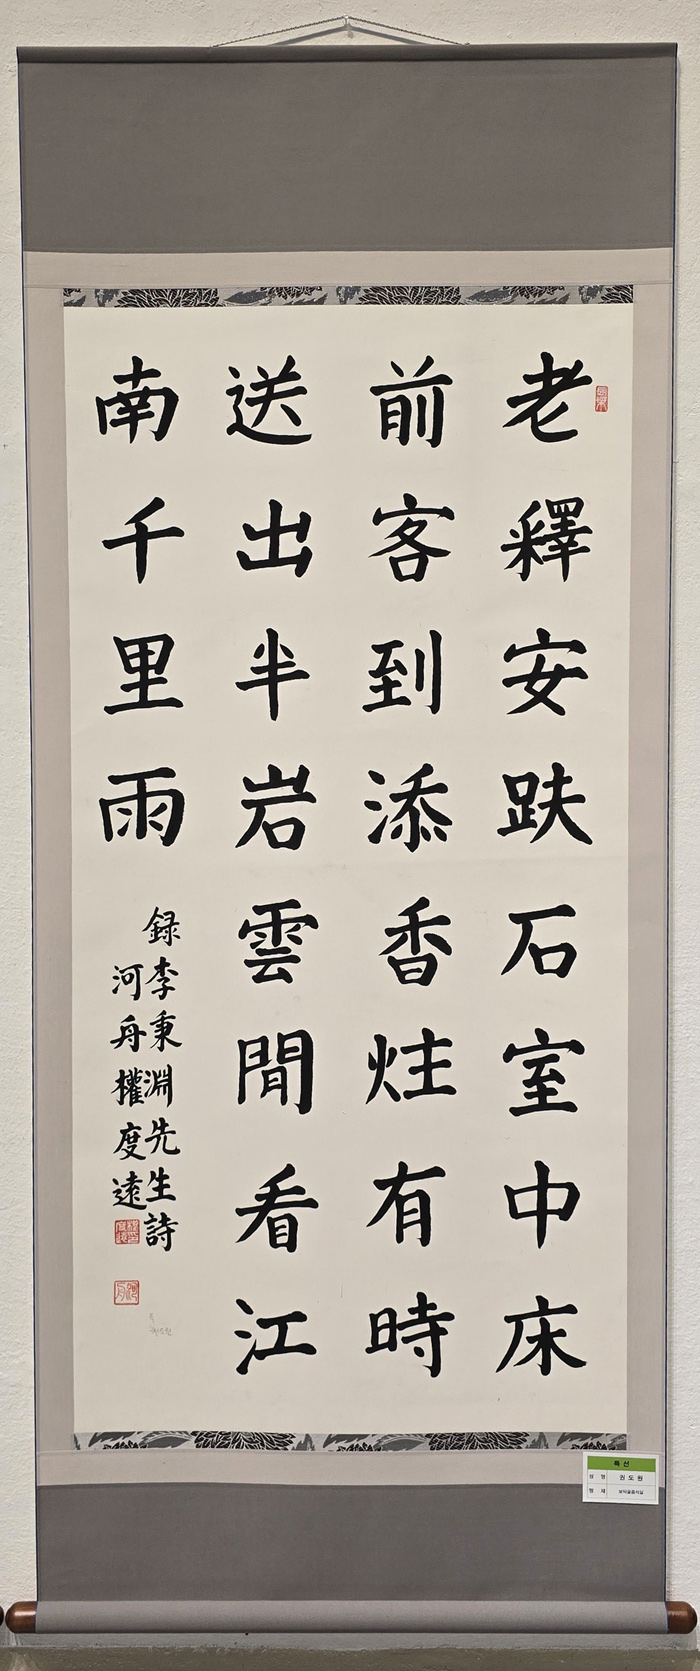 老釋安趺石室中床
前客到添香炷有時
送出半岩雲閒看江
南千里雨
録李秉淵先生詩
河舟權度遠
특선
성 명 권도원
명 제